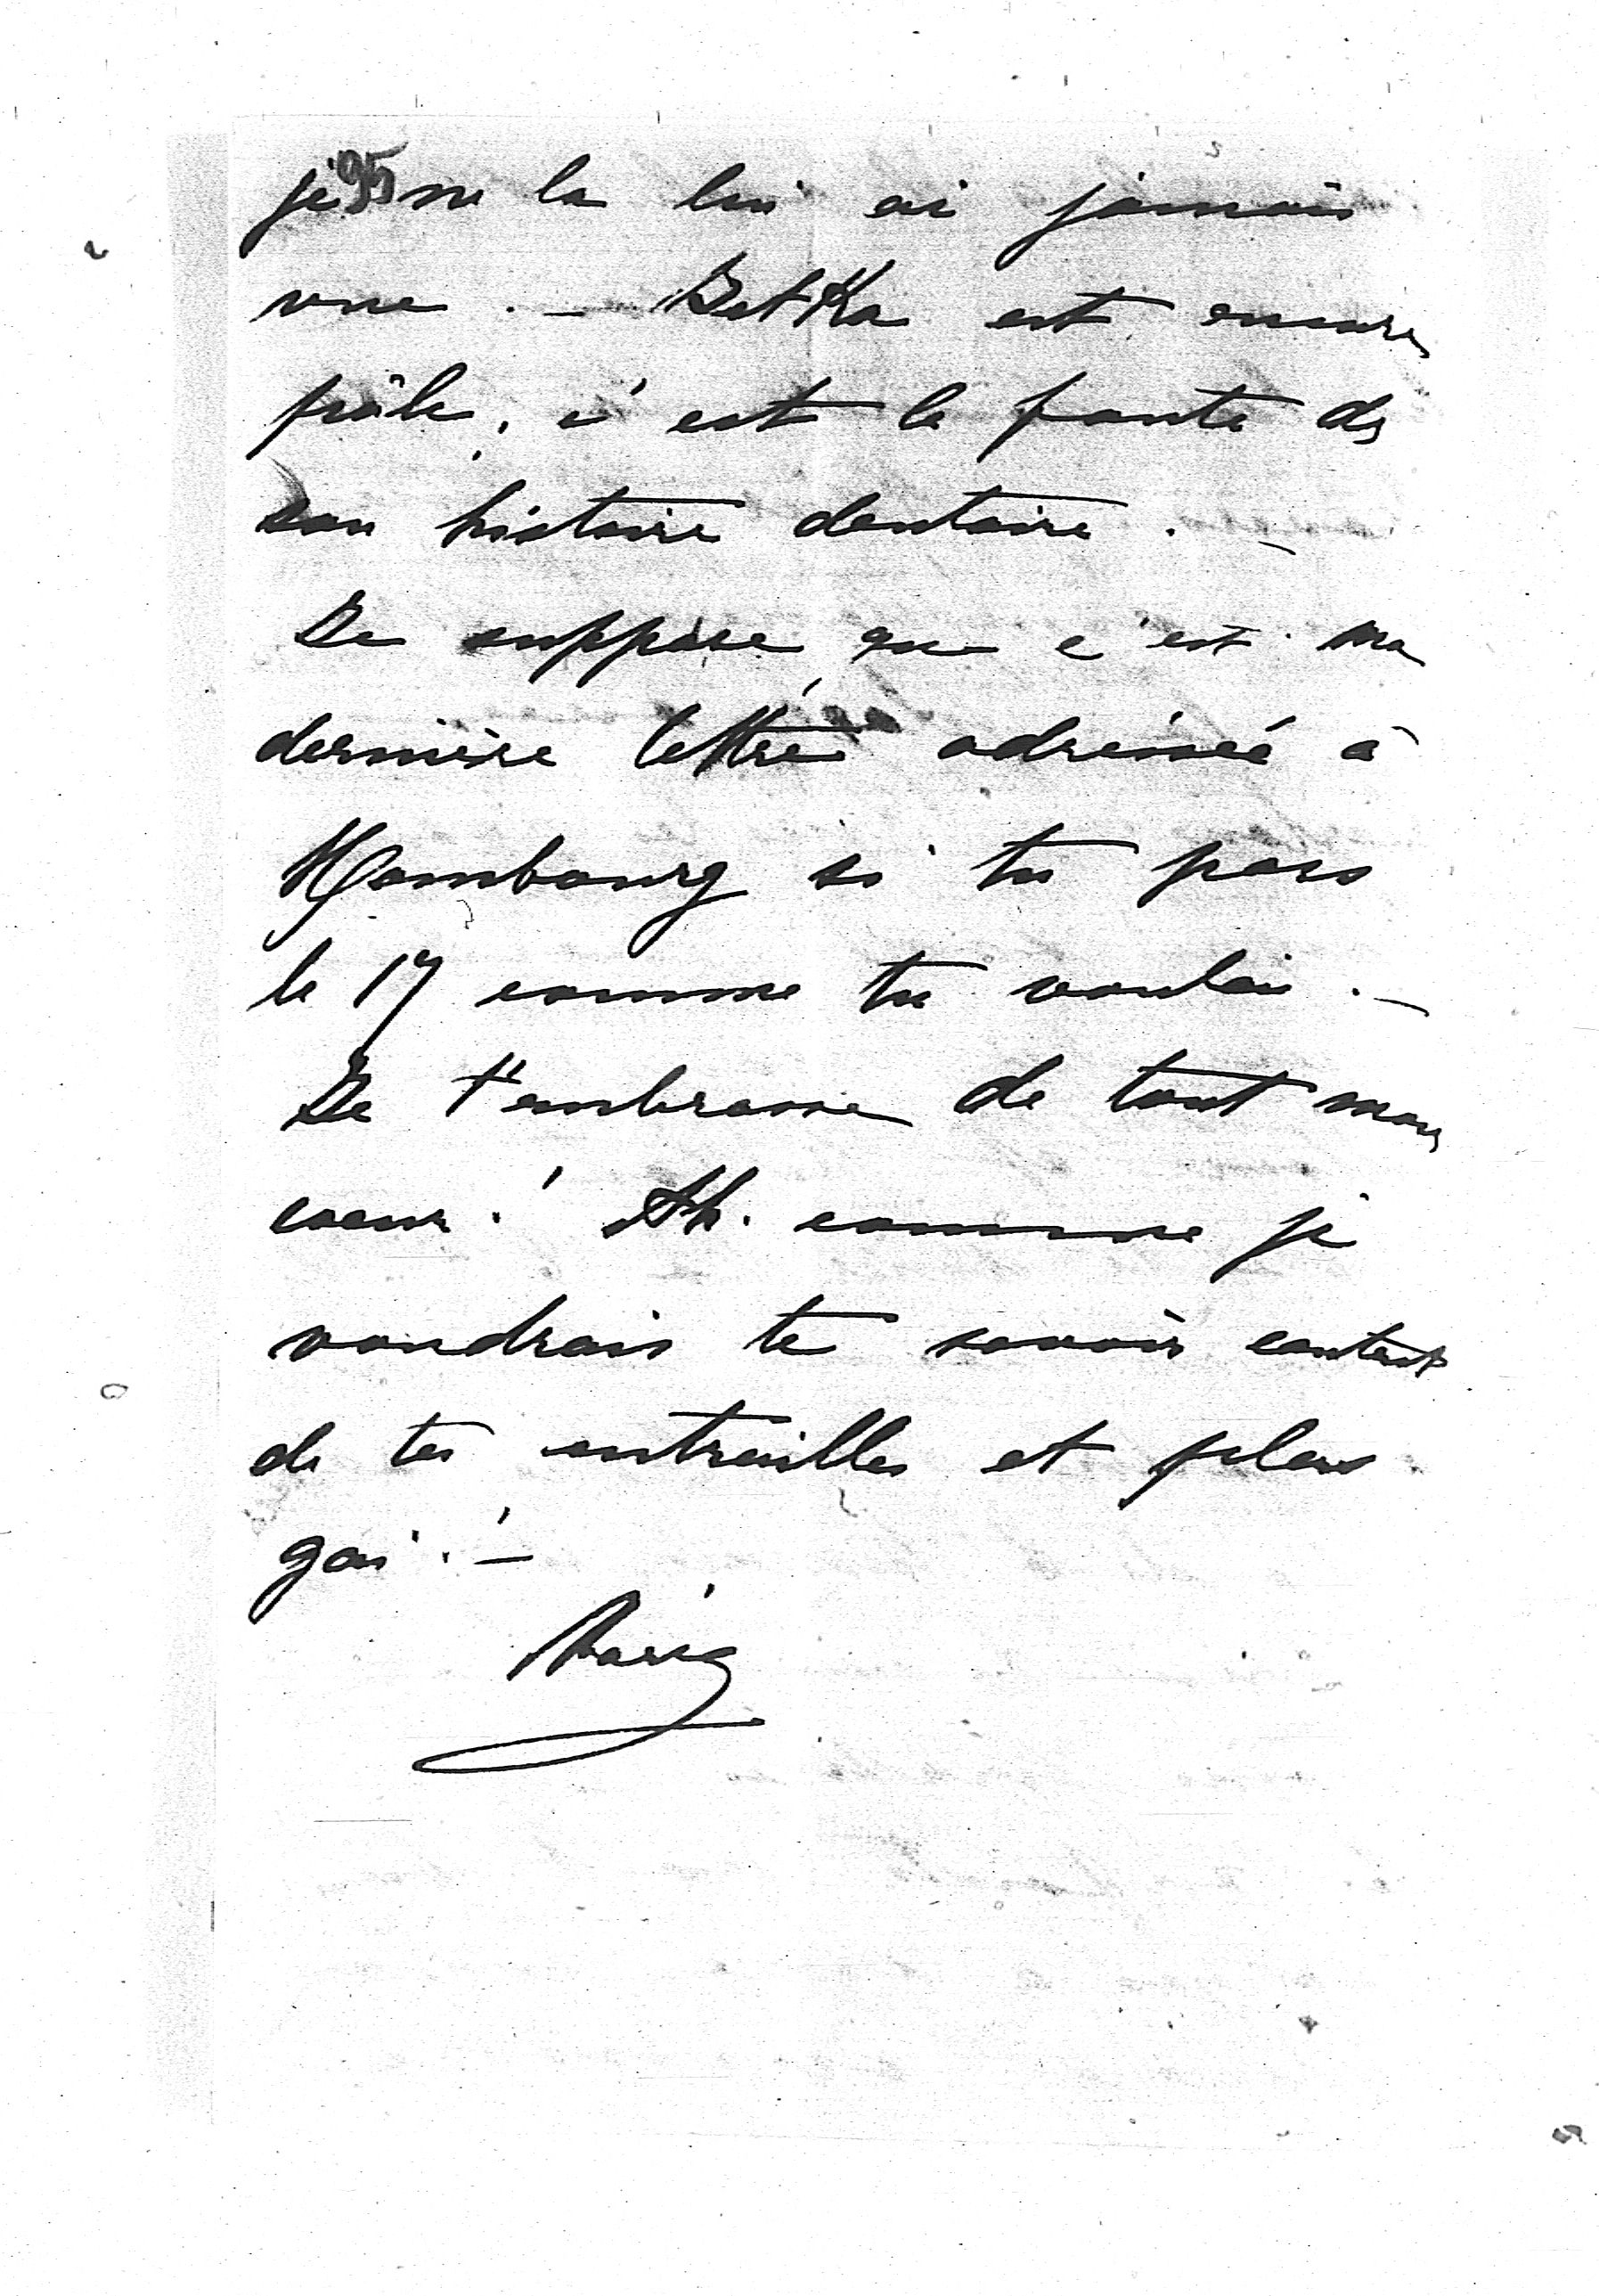 je 95 ne la lui ai jamais
vue . — Jetka est encore
pâle, c'est la faute de
son histoire dentaire . —
Je suppose que c'est ma
dernière lettre adressée à
Hambourg si tu pars
le 17 comme tu voulais . —
Je t'embrasse de tout mon
coeur ! Ah. comme je
voudrais te savoir content
de tes entrailles et plus
gai ! —